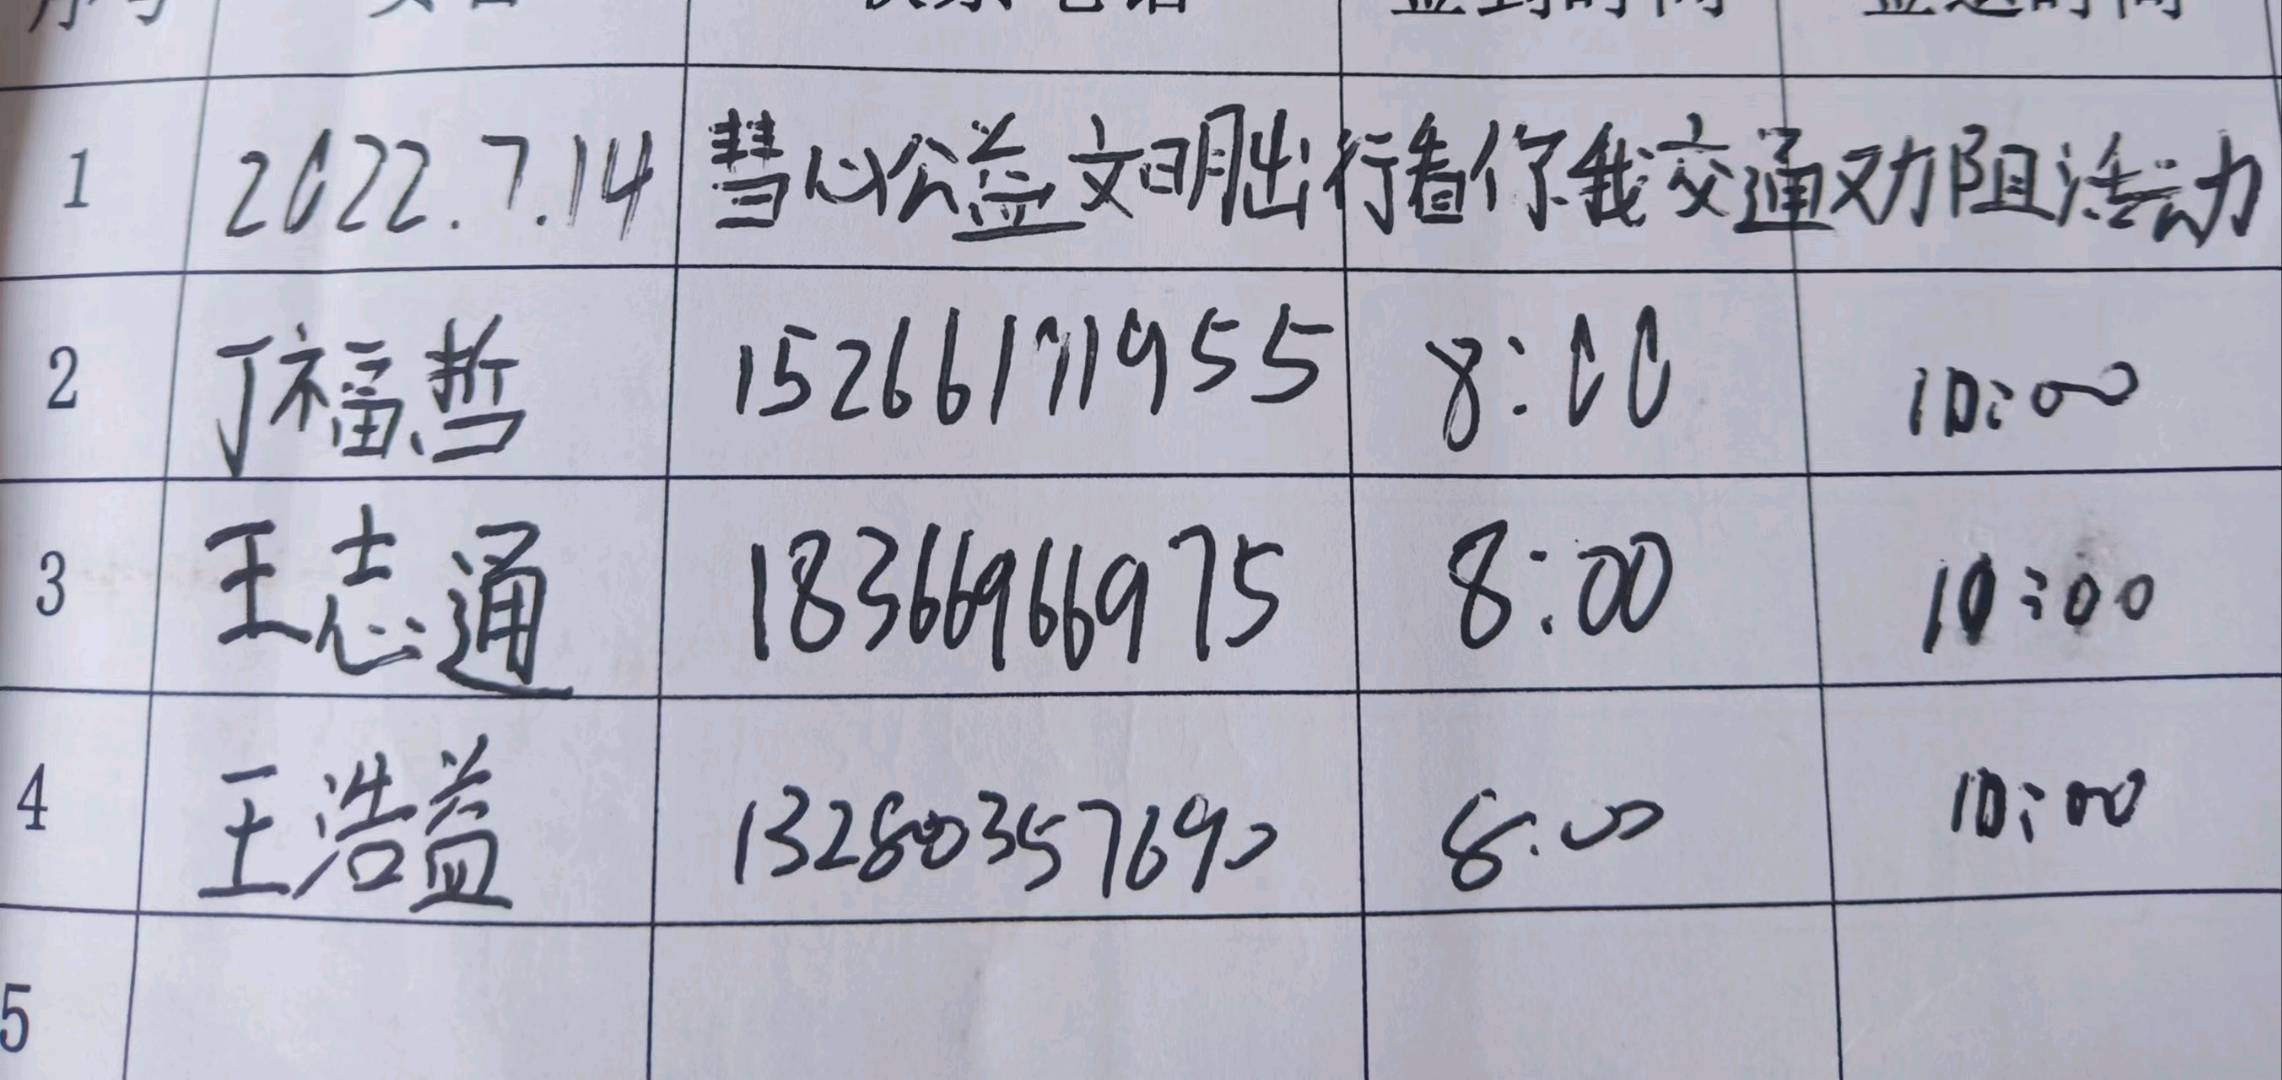 序号 姓名 联系电话 签到时间 签退时间
1 2022.7.14 慧心公益文明出行看你我交通劝阻活动
2 丁福哲 15266171955 8:00 10:00
3 王志通 18366966975 8:00 10:00
4 王浩益 13280357690 8:00 10:00
5